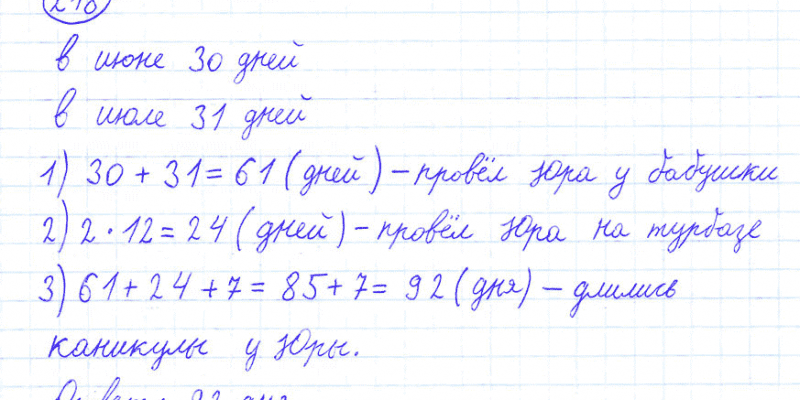 в июне 30 дней
в июле 31 дней
1) 30 + 31 = 61 (дней) – провёл Юра у бабушки
2) 2 · 12 = 24 (дней) – провёл Юра на турбазе
3) 61 + 24 + 7 = 85 + 7 = 92 (дня) – длились
каникулы у Юры.